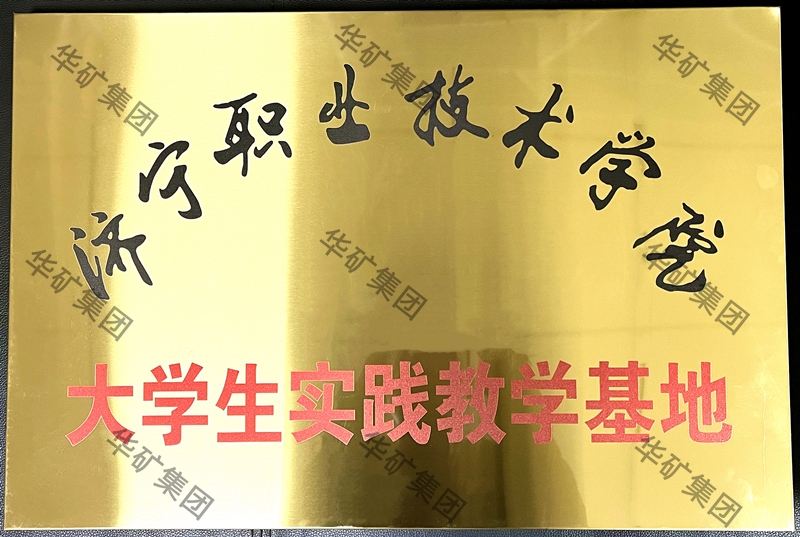 济宁职业技术学院
大学生实践教学基地
华矿集团
华矿集团
华矿集团
华矿集团
华矿集团
华矿集团
华矿集团
华矿集团
华矿集团